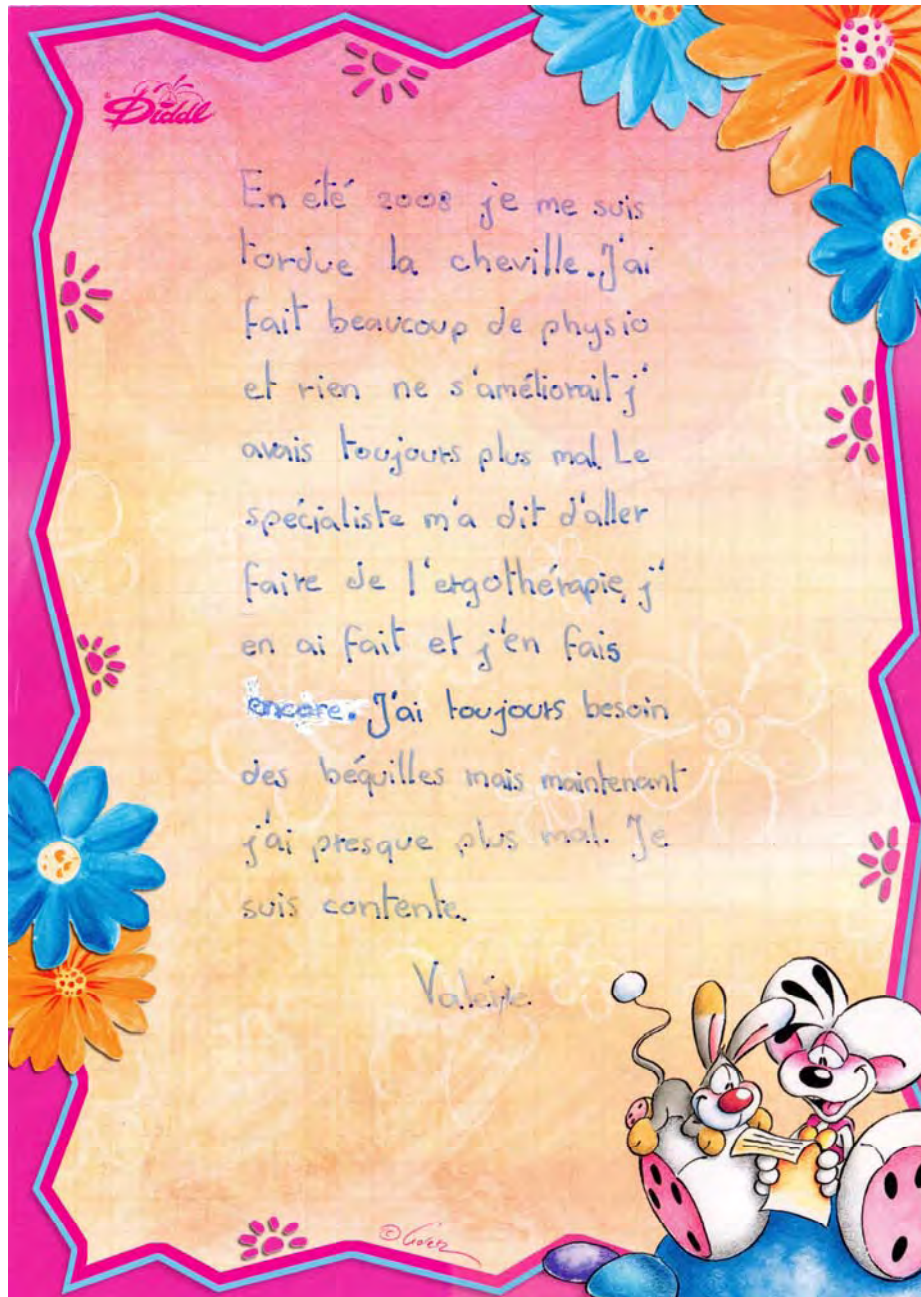 Diddl
En été 2008 je me suis
tordue la cheville. J'ai
fait beaucoup de physio
et rien ne s'améliorait j'
avais toujours plus mal. Le
spécialiste m'a dit d'aller
faire de l'ergothérapie, j'
en ai fait et j'en fais
encore. J'ai toujours besoin
des béquilles mais maintenant
j'ai presque plus mal. Je
suis contente.
Valérie.